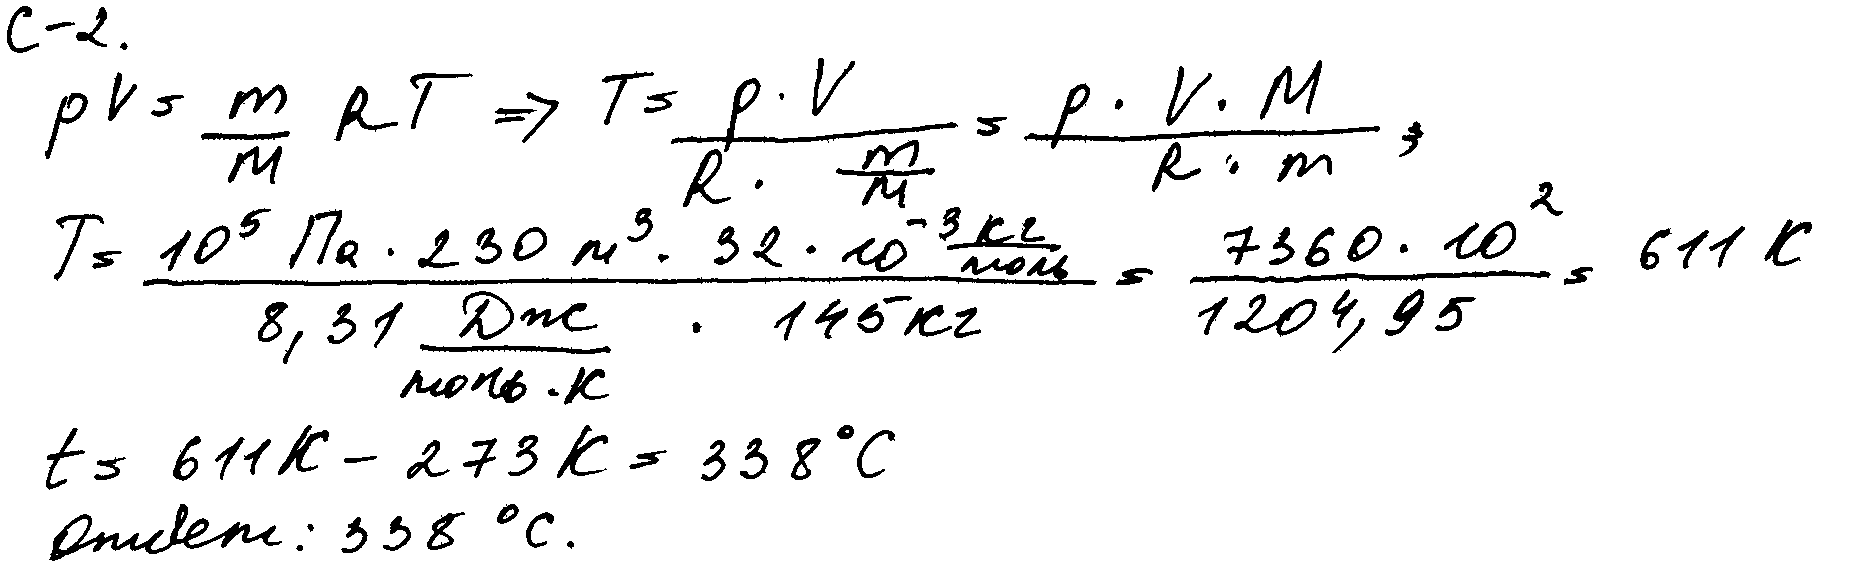 С-2.
pV = m/M RT ⇒ T = p · V / (R · m/M) = p · V · M / (R · m) ,
T = 10⁵ Па · 230 м³ · 32 · 10⁻³ кг/моль / (8,31 Дж/(моль · К) · 145 кг) = 7360 · 10² / 1204,95 = 611 К
t = 611 К - 273 К = 338 °C
Ответ: 338 °C.